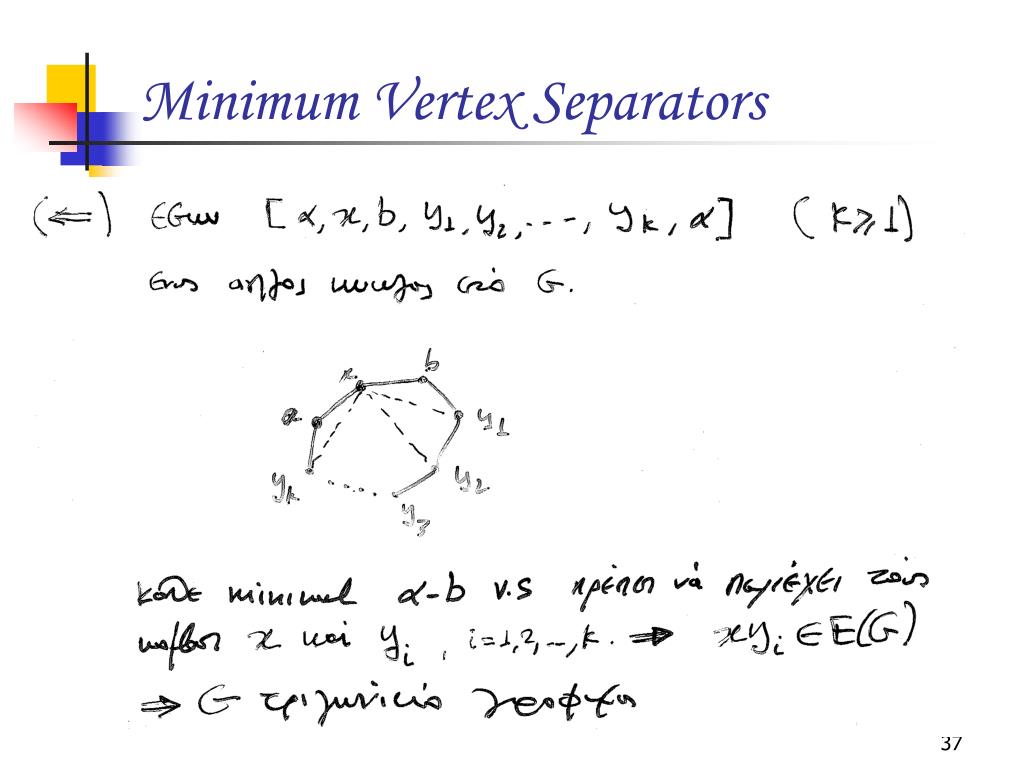 Minimum Vertex Separators
(⇐) Εστω [α, x, b, y₁, y₂, ..., yₖ, α] (k ≥ 1)
ενας απλος κυκλος στό G.
x
b
a
y₁
yₖ
y₂
y₃
κάθε minimal α-b v.s πρέπει νά περιέχει τούς
κομβους x και yᵢ, i=1,2,..,k. ⇒ xyᵢ ∈ E(G)
⇒ G τριγωνικό γραφημα
37